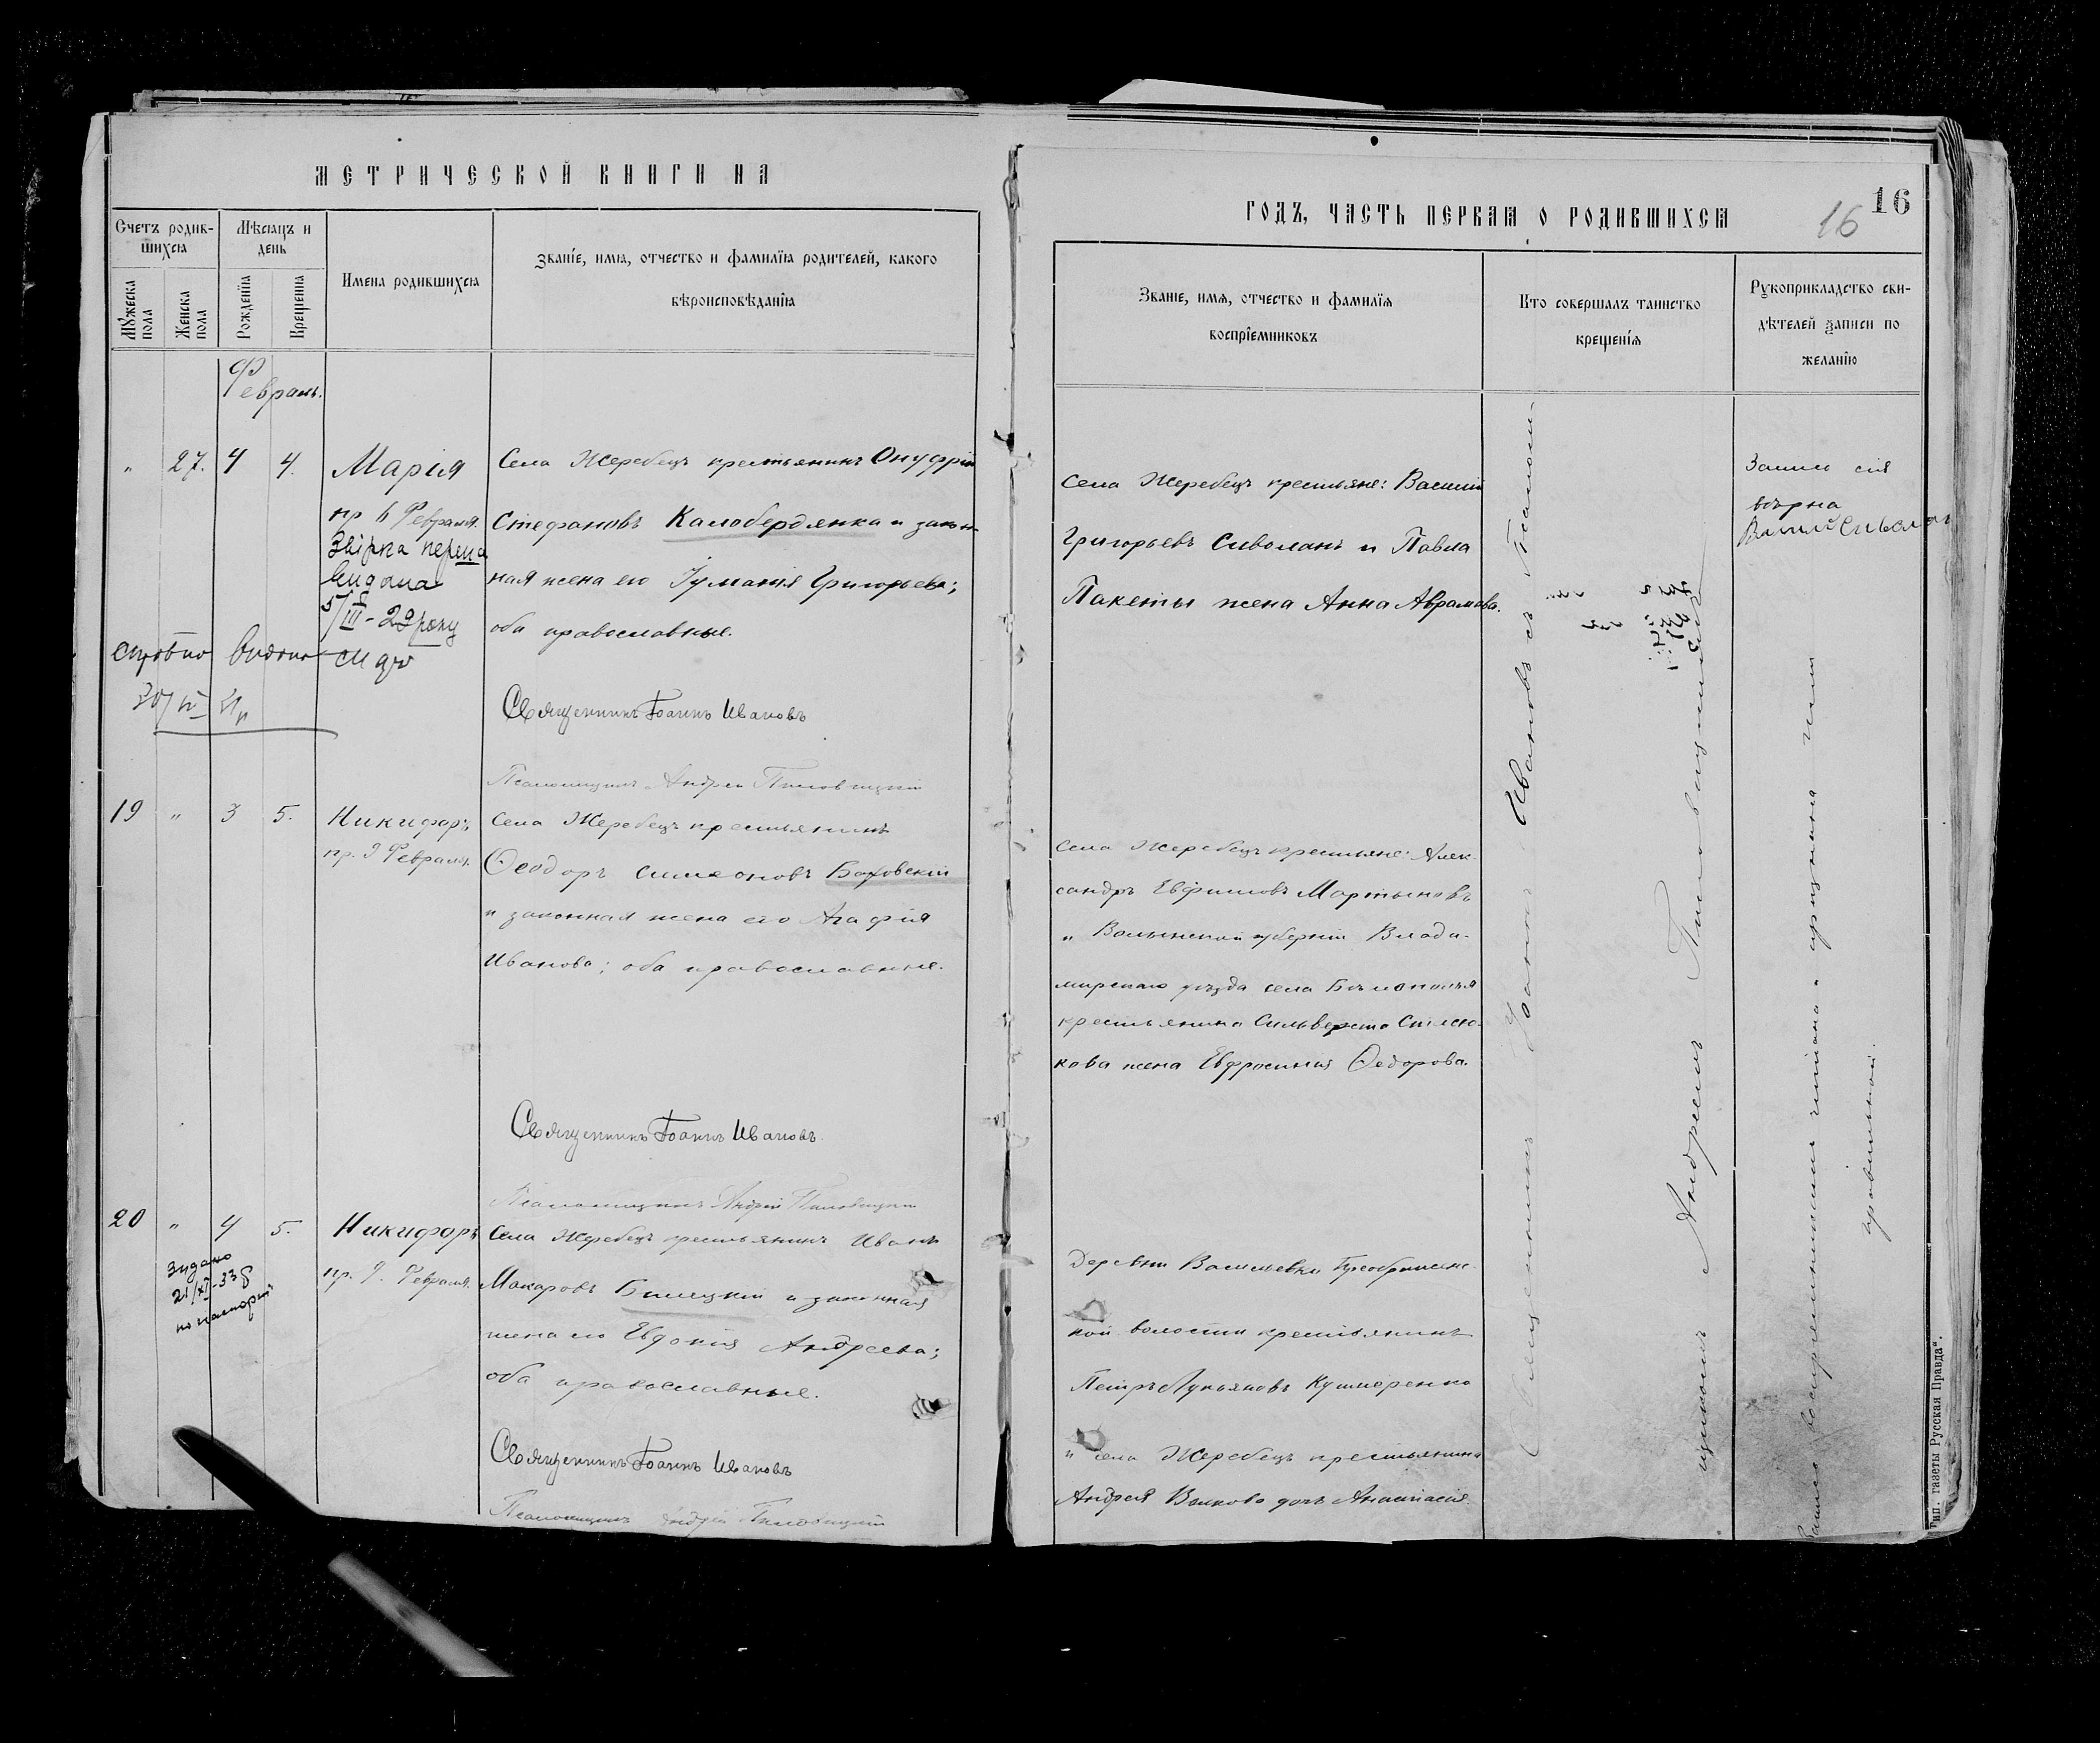 МЕТРИЧЕСКОЙ КНИГИ НА
Счетъ родив-
шихся
Мѣсяцъ и
день
Имена родившихся
Званіе, имя, отчество и фамилія родителей, какого
вѣроисповѣданія
Мужеска
пола
Женска
пола
Рожденія
Крещенія
Февраль.
" 27. 4 4. Марія
пр 6 Февраля.
видана
5/III - 29 року
Видано
Села Жеребецъ крестьянинъ Онуфрій
Стефановъ Калоберднка и закон-
ная жена его Іуліанія Григорьева;
оба православные.
Священникъ Іоаннъ Ивановъ
Псаломщикъ Андрей
19 " 3 5. Никифоръ
пр. 9 Февраля.
Села Жеребецъ крестьянинъ
Ѳеодоръ Симеоновъ Боховскій
и законная жена его Агафія
Иванова; оба православные.
Священникъ Іоаннъ Ивановъ
Псаломщикъ Андрей
20 " 4 5. Никифоръ
пр. 9. Февраля.
21/XI-33
Села Жеребецъ крестьянинъ Иванъ
Макаровъ Билецкій и законная
жена его Евдокія Андреева;
оба православные.
Священникъ Іоаннъ Ивановъ
Псаломщикъ Андрей
ГОДЪ, ЧАСТЬ ПЕРВАЯ О РОДИВШИХСЯ
16
16
Званіе, имя, отчество и фамилія
воспріемниковъ
Кто совершалъ таинство
крещенія
Рукоприкладство сви-
дѣтелей записи по
желанію
Села Жеребецъ крестьяне: Василій
Григорьевъ Сиволапъ и Павла
Пакеты жена Анна Аврамова.
Села Жеребецъ крестьяне: Алек-
сандръ Евфимовъ Мартыновъ
и Волынской губерніи Влади-
мирскаго уѣзда села
крестьянина Сильверста
кова жена Евфросинія Ѳедорова.
Деревни Васильевки Преображенс-
кой волости крестьянинъ
Петръ Лукьяновъ Кушнеренко
и села Жеребецъ крестьянина
Андрея Волкова дочь Анастасія.
Священникъ Іоаннъ Ивановъ съ Псалом-
щикомъ Андреемъ
Запись сія
вѣрна
Василій Сиволапъ
Запись воспріемниками читана и признана ими
правильной.
Тип. газеты Русская Правда".